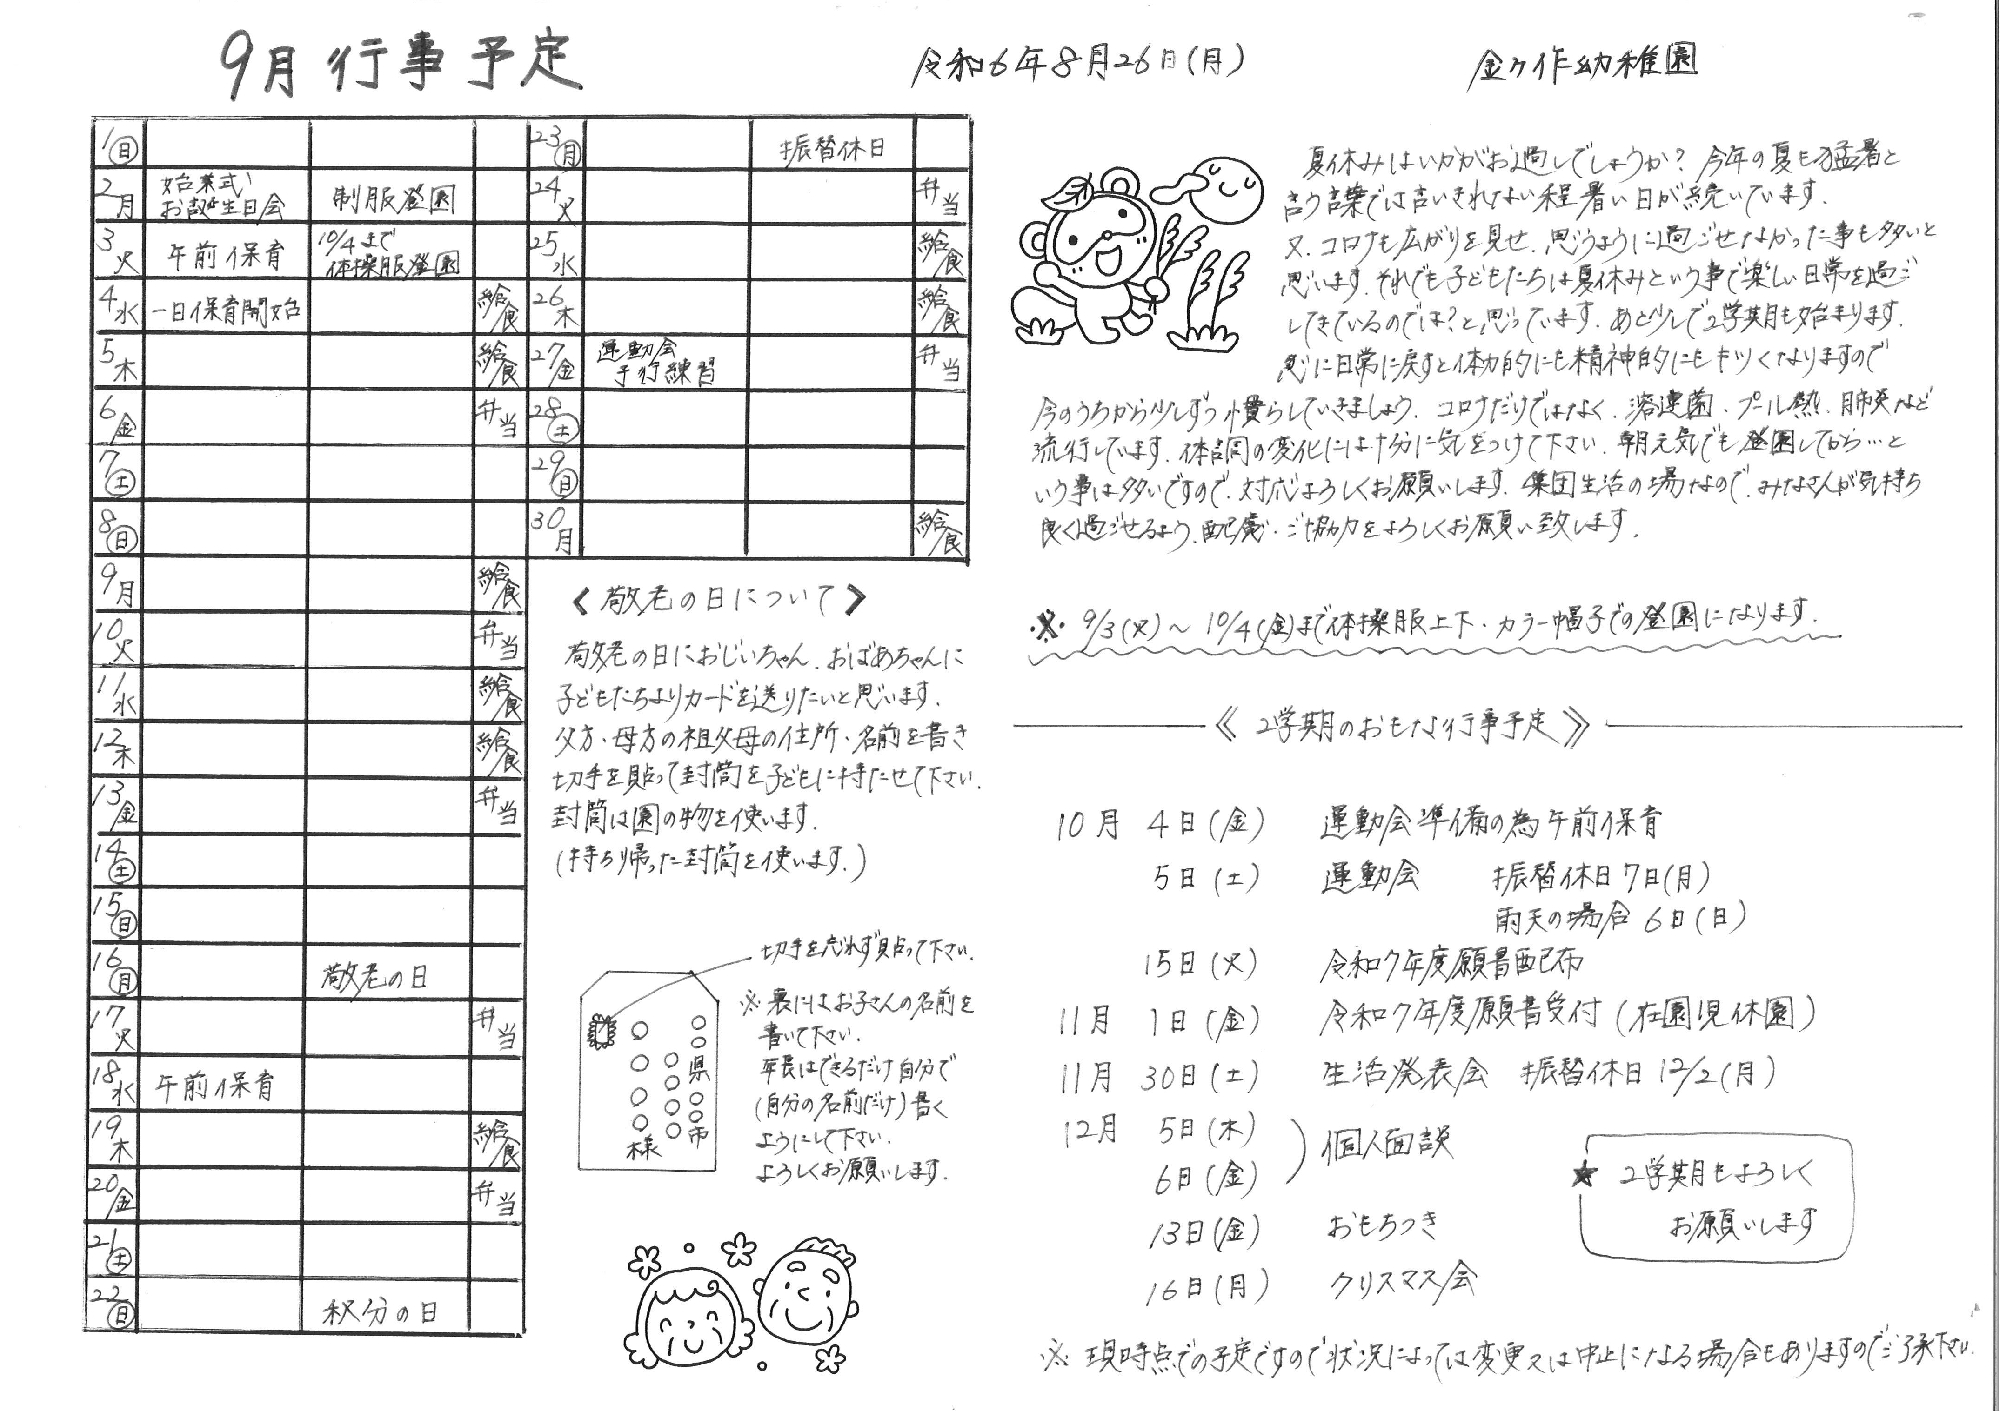 9月行事予定
令和6年8月26日(月)
金ヶ作幼稚園
1日
2月 始業式 お誕生日会 制服登園
3火 午前保育 10/4まで 体操服登園
4水 一日保育開始 給食
5木 給食
6金 弁当
7土
8日
9月 給食
10火 弁当
11水 給食
12木 給食
13金 弁当
14土
15日
16月 敬老の日
17火 弁当
18水 午前保育
19木 給食
20金 弁当
21土
22日 秋分の日
23月 振替休日
24火 弁当
25水 給食
26木 給食
27金 運動会 予行練習 弁当
28土
29日
30月 給食
〈敬老の日について〉
敬老の日におじいちゃん、おばあちゃんに
子どもたちよりカードを送りたいと思います。
父方・母方の祖父母の住所・名前を書き
切手を貼って封筒を子どもに持たせて下さい。
封筒は園の物を使います。
(持ち帰った封筒を使います。)
切手を忘れず貼って下さい。
○○県○○市
○○○○
○○○○○様
※裏にはお子さんの名前を
書いて下さい。
年長はできるだけ自分で
(自分の名前だけ)書く
ようにして下さい。
よろしくお願いします。
夏休みはいかがお過しでしょうか?今年の夏も猛暑と
言う言葉では言いきれない程暑い日が続いています。
又、コロナも広がりを見せ、思うように過ごせなかった事も多いと
思います。それでも子どもたちは夏休みという事で楽しい日常を過ご
してきているのでは?と思っています。あと少しで2学期も始まります。
急に日常に戻すと体力的にも精神的にもキツくなりますので
今のうちから少しずつ慣らしていきましょう。コロナだけではなく、溶連菌・プール熱・肺炎など
流行しています。体調の変化には十分に気をつけて下さい。朝元気でも登園してから…と
いう事は多いですので、対応よろしくお願いします。集団生活の場なので、みなさんが気持ち
良く過ごせるよう、配慮・ご協力をよろしくお願い致します。
※ 9/3(火)～10/4(金)まで体操服上下・カラー帽子での登園になります。
《2学期のおもな行事予定》
10月 4日(金) 運動会準備の為午前保育
5日(土) 運動会 振替休日7日(月)
雨天の場合6日(日)
15日(火) 令和7年度願書配布
11月 1日(金) 令和7年度願書受付(在園児休園)
11月 30日(土) 生活発表会 振替休日12/2(月)
12月 5日(木)
6日(金) 個人面談
13日(金) おもちつき
16日(月) クリスマス会
★2学期もよろしく
お願いします
※現時点での予定ですので状況によっては変更又は中止になる場合もありますのでご了承下さい。